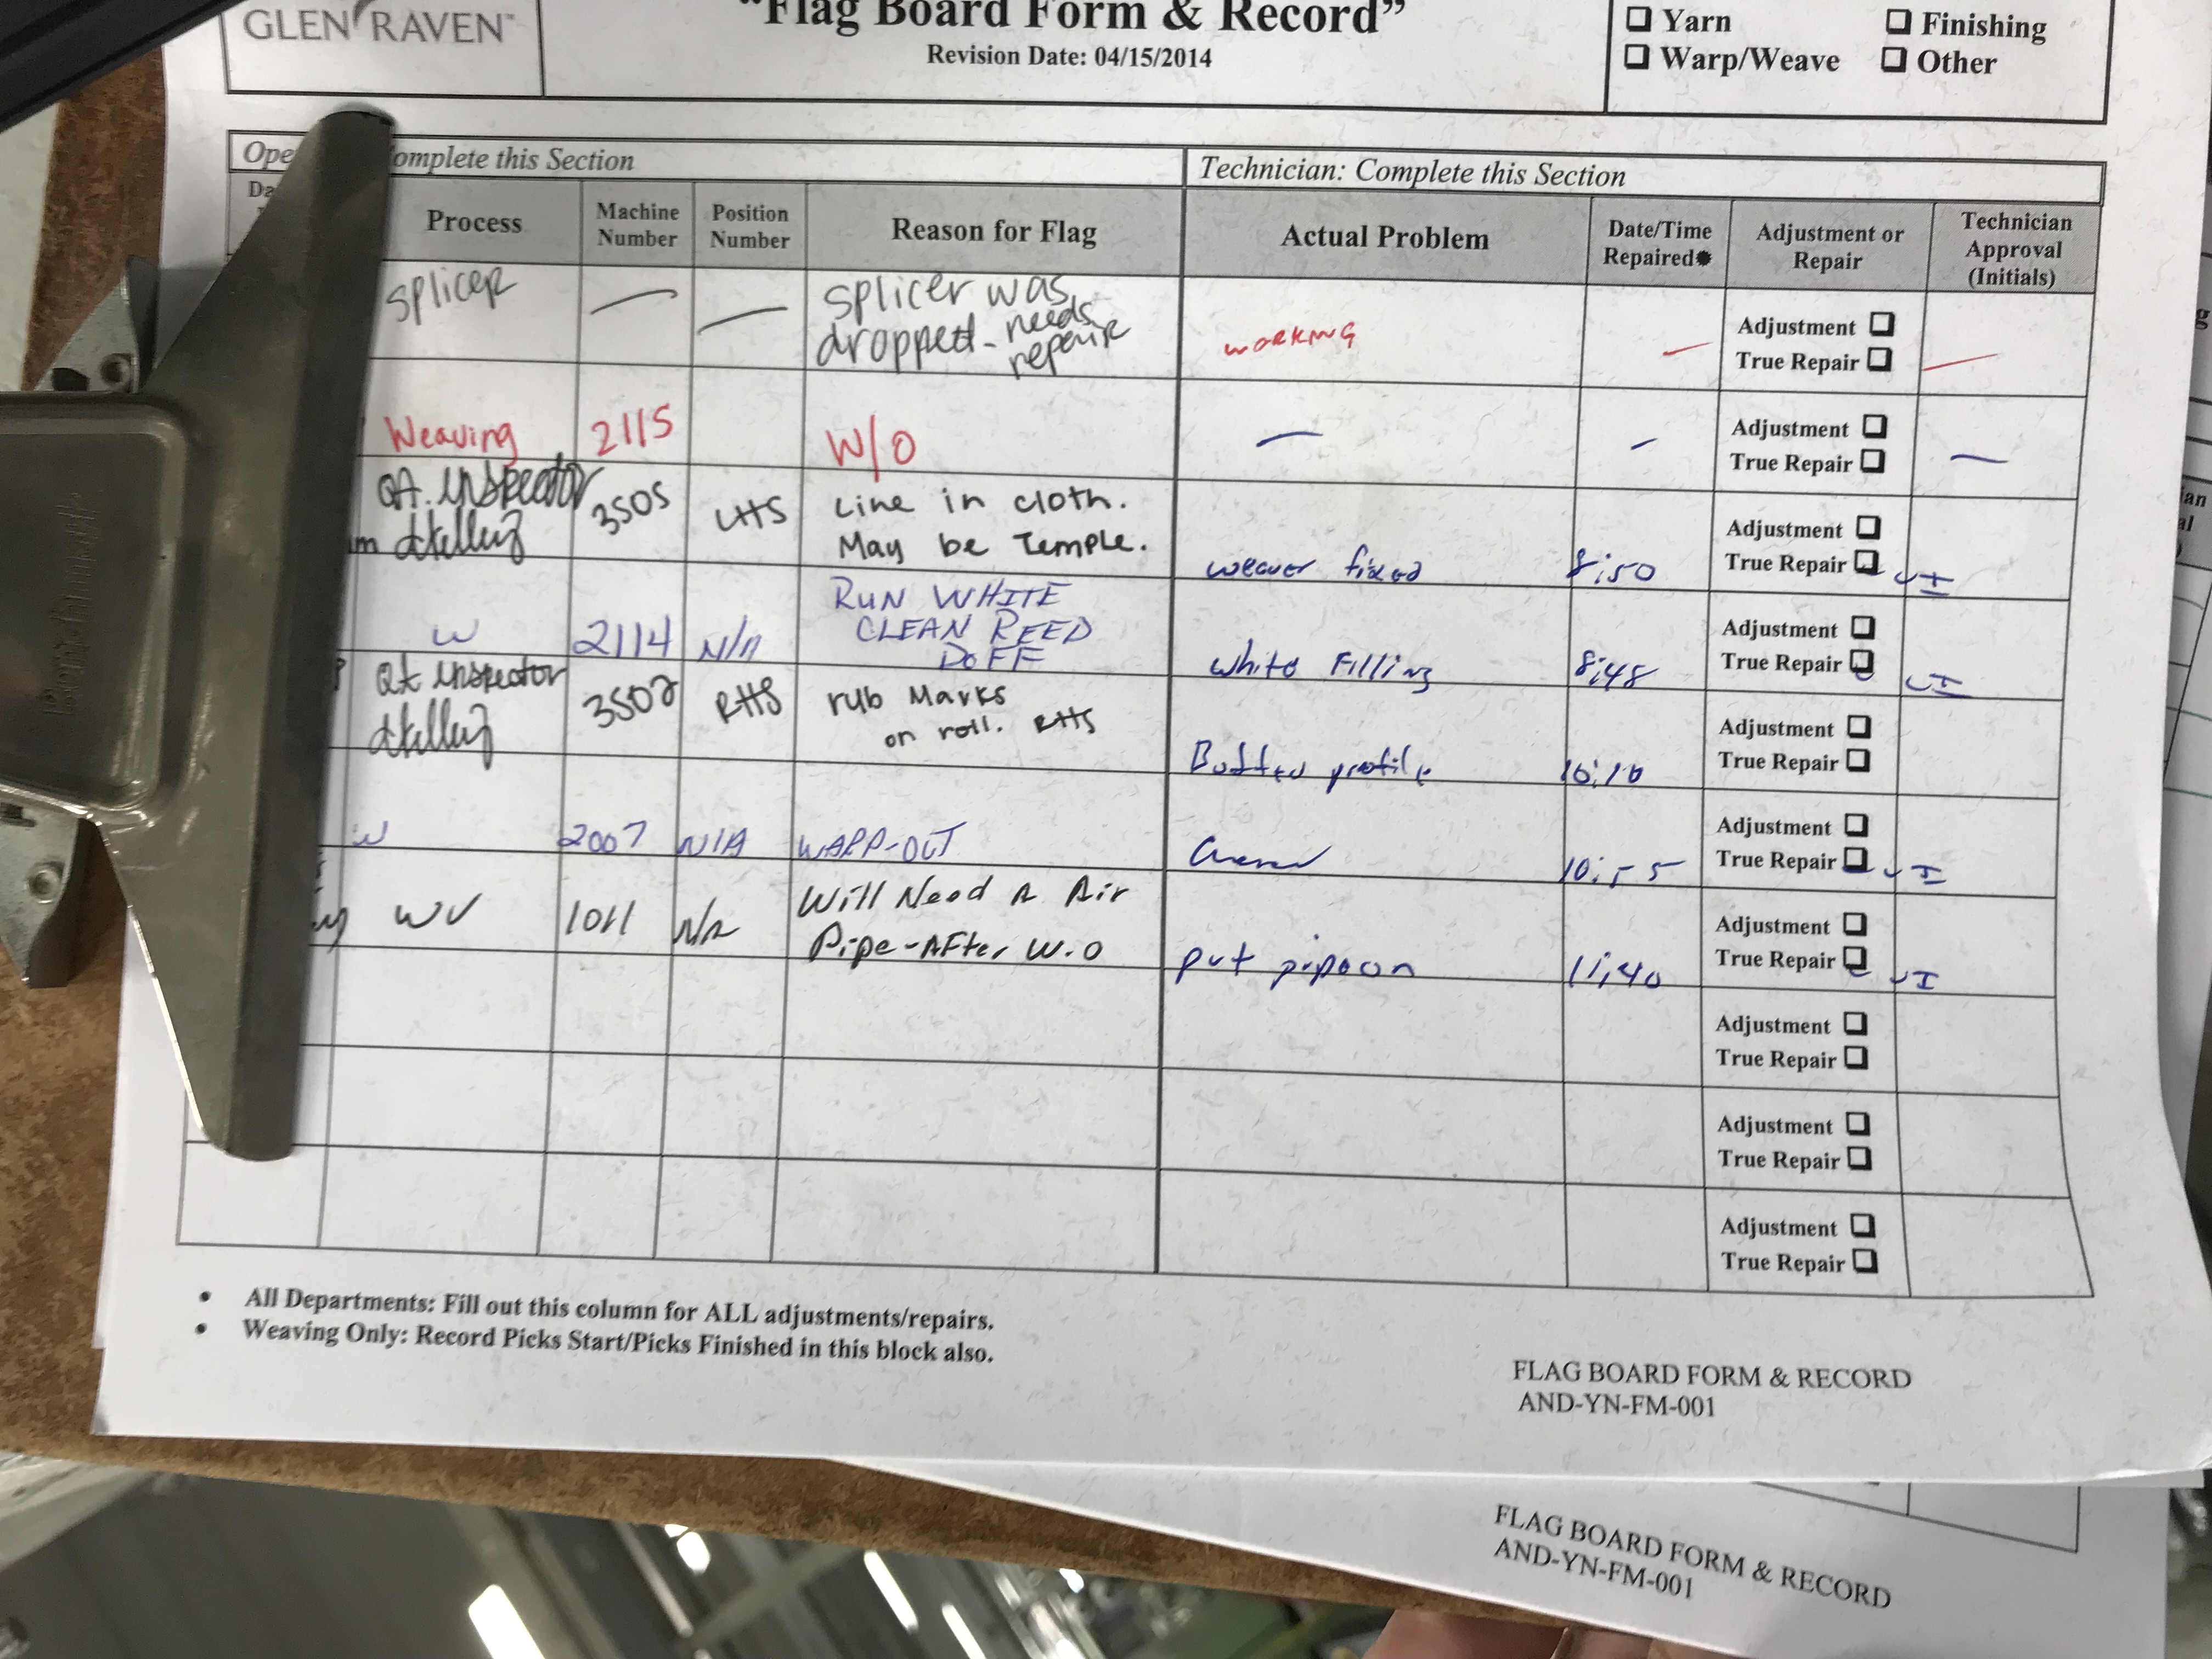 GLEN RAVEN™
"Flag Board Form & Record"
Revision Date: 04/15/2014
❑ Yarn ❑ Finishing
❑ Warp/Weave ❑ Other
Ope omplete this Section
Technician: Complete this Section
Da
Process
Machine
Number
Position
Number
Reason for Flag
Actual Problem
Date/Time
Repaired
Adjustment or
Repair
Technician
Approval
(Initials)
splicer
splicer was
dropped - needs
repair
working
Adjustment ❑
True Repair ❑
Weaving 2115 W/O
Adjustment ❑
True Repair ❑
QA. Inspector
3505 LHS
Line in cloth.
May be Temple.
weaver fixed 8:50
Adjustment ❑
True Repair ❑
W 2114 N/A
RUN WHITE
CLEAN REED
DOFF
white Filling 8:48
Adjustment ❑
True Repair ❑
QA Inspector
3502 RHS
rub Marks
on roll. RHS
profile 10:10
Adjustment ❑
True Repair ❑
W 2007 N/A WARP-OUT
10:55
Adjustment ❑
True Repair ❑
WV 1011 N/A
Will Need A Air
Pipe-After W.O
put pipe on 11:40
Adjustment ❑
True Repair ❑
Adjustment ❑
True Repair ❑
Adjustment ❑
True Repair ❑
Adjustment ❑
True Repair ❑
• All Departments: Fill out this column for ALL adjustments/repairs.
• Weaving Only: Record Picks Start/Picks Finished in this block also.
FLAG BOARD FORM & RECORD
AND-YN-FM-001
FLAG BOARD FORM & RECORD
AND-YN-FM-001